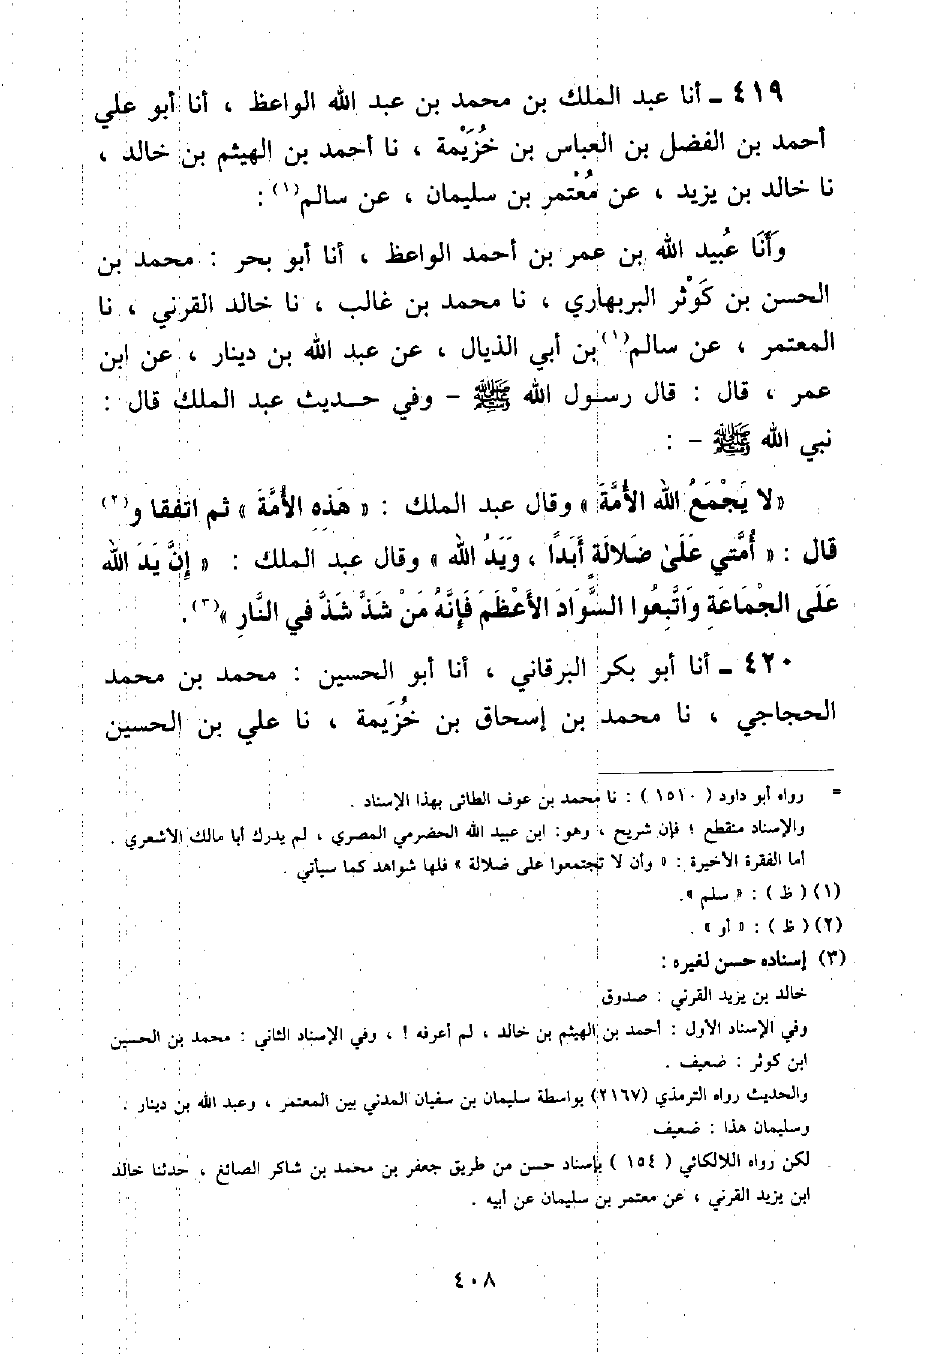 ٤١٩ ـ أنا عبد الملك بن محمد بن عبد الله الواعظ ، أنا أبو علي
أحمد بن الفضل بن العباس بن خُزَيْمة ، نا أحمد بن الهيثم بن خالد ،
نا خالد بن يزيد ، عن مُعْتمر بن سليمان ، عن سالم(١) :
وَأَنَا عُبيد الله بن عمر بن أحمد الواعظ ، أنا أبو بحر : محمد بن
الحسن بن كَوْثر البربهاري ، نا محمد بن غالب ، نا خالد القرني ، نا
المعتمر ، عن سالم(١) بن أبي الذيال ، عن عبد الله بن دينار ، عن ابن
عمر ، قال : قال رسول الله ﷺ - وفي حديث عبد الملك قال :
نبي الله ﷺ - :
«لا يَجْمَعُ الله الأُمَّةَ» وقال عبد الملك : « هَذِهِ الأُمَّةَ » ثم اتفقا و(٢)
قال : « أُمَّتي عَلَىٰ ضَلالَةٍ أَبَداً ، وَيَدُ الله » وقال عبد الملك : « إِنَّ يَدَ الله
عَلَى الجْمَاعَةِ وَاتَّبِعُوا السَّوَادَ الأَعْظَمَ فَإِنَّهُ مَنْ شَذَّ شَذَّ في النَّارِ »(٣).
٤٢٠ ـ أنا أبو بكر البرقاني ، أنا أبو الحسين : محمد بن محمد
الحجاجي ، نا محمد بن إسحاق بن خُزَيمة ، نا علي بن الحسين
= رواه أبو داود ( ١٥١٠ ) : نا محمد بن عوف الطائي بهذا الإسناد .
والإسناد منقطع ؛ فإن شريح ، وهو: ابن عبيد الله الحضرمي المصري ، لم يدرك أبا مالك الأشعري .
أما الفقرة الأخيرة : « وأن لا تجتمعوا على ضلالة » فلها شواهد كما سيأتي .
(١) ( ظ ) : « سلم ».
(٢) ( ظ ) : « أو » .
(٣) إسناده حسن لغيره :
خالد بن يزيد القرني : صدوق
وفي الإسناد الأول : أحمد بن الهيثم بن خالد ، لم أعرفه ! ، وفي الإسناد الثاني : محمد بن الحسين
ابن كوثر : ضعيف .
والحديث رواه الترمذي (٢١٦٧) بواسطة سليمان بن سفيان المدني بين المعتمر ، وعبد الله بن دينار .
وسليمان هذا : ضعيف
لكن رواه اللالكائي ( ١٥٤ ) بإسناد حسن من طريق جعفر بن محمد بن شاكر الصائغ ، حدثنا خالد
ابن يزيد القرني ، عن معتمر بن سليمان عن أبيه .
٤٠٨